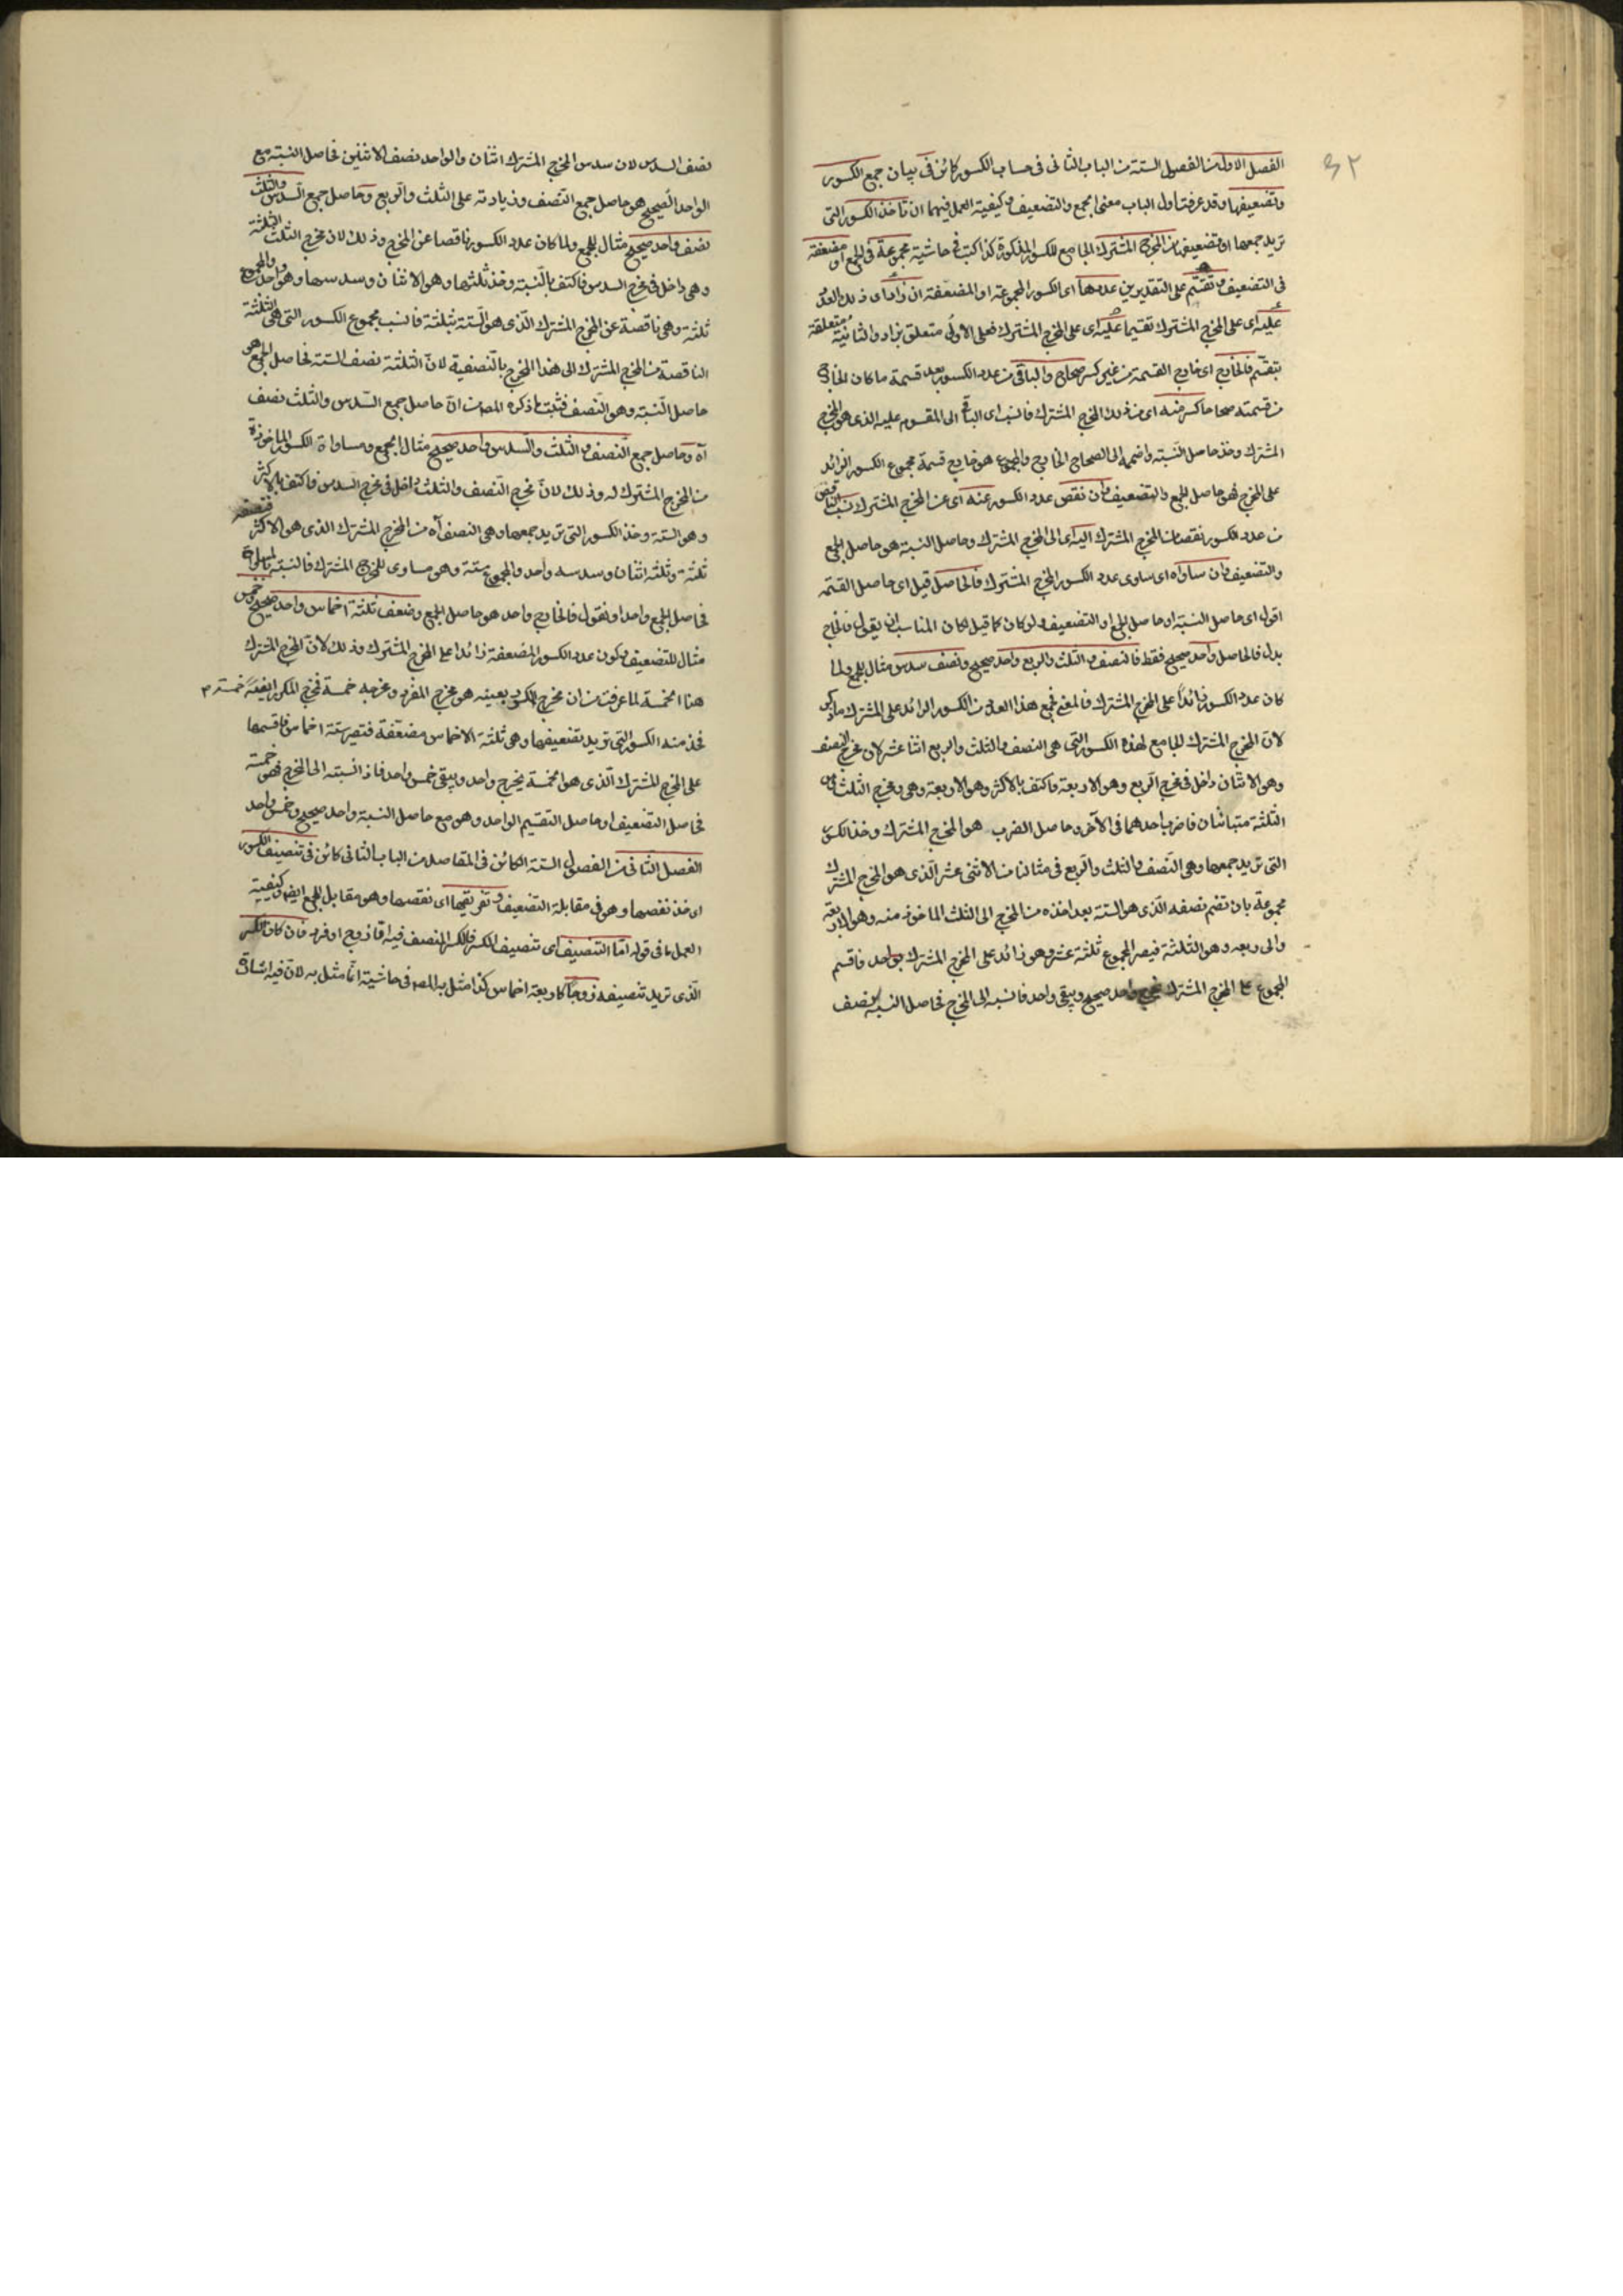 ٤٢
الفصل الاول من الفصول الستة من الباب الثانى فى حساب الكسور كائن فى بيان جمع الكسور
وتضعيفها وقد عرفت اول الباب معنى الجمع والتضعيف وكيفية العمل فيهما ان تأخذ الكسور التى
تريد جمعها او تضعيفها من المخرج المشترك الجامع للكسور المذكورة كذا كتب فى حاشيته مجموعة فى الجمع او مضعفة
فى التضعيف وتقسم على التقديرين عددها اى الكسور المجموعة او المضعفة ان زاد اى ذلك العدد
عليه اى على المخرج المشترك تقسيما عليه اى على المخرج المشترك فعلى الاولى متعلق بزاد والثانية متعلقة
بتقسم فالخارج اى خارج القسمة من غير كسر صحاح والباقى من عدد الكسور بعد قسمة ما كان الخارج
من قسمته صحاحا كسر منه اى من ذلك المخرج المشترك فانسب اى الباقى الى المقسوم عليه الذى هو المخرج
المشترك وخذ حاصل النسبة واضممه الى الصحاح الخارج والمجموع هو خارج قسمة مجموع الكسور الزائد
على المخرج فهو حاصل الجمع والتضعيف وان نقص عدد الكسور عنه اى عن المخرج المشترك نسب الناقص
من عدد الكسور نقصانا من المخرج المشترك اليه اى الى المخرج المشترك وحاصل النسبة هو حاصل الجمع
والتضعيف وان ساواه اى ساوى عدد الكسور المخرج المشترك فالحاصل قيل اى حاصل القسمة
اقول اى حاصل النسبة او حاصل الجمع او التضعيف ولو كان كما قيل لكان المناسب ان يقول فالخارج
بدل فالحاصل واحد صحيح فقط فالنصف والثلث والربع واحد صحيح ونصف سدس مثال للجمع ولما
كان عدد الكسور زائدا على المخرج المشترك فالمعنى فجمع هذا العدد من الكسور الزائد على المشترك ما ذكر
لان المخرج المشترك الجامع لهذه الكسور التى هى النصف والثلث والربع اثنا عشر لان مخرج النصف
وهو الاثنان داخل فى مخرج الربع وهو الاربعة فاكتف بالاكثر وهو الاربعة وهى ومخرج الثلث وهى
الثلثة متباينان فاضرب احدهما فى الآخر وحاصل الضرب هو المخرج المشترك وخذ الكسور
التى تريد جمعها وهى النصف والثلث والربع فى مثالنا من الاثنى عشر الذى هو المخرج المشترك
مجموعة بان تضم نصفه الذى هو الستة بعد اخذه من المخرج الى الثلث الماخوذ منه وهو الاربعة
والى ربعه وهو الثلثة فيصير المجموع ثلثة عشر وهو زائد على المخرج المشترك بواحد فاقسم
المجموع على المخرج المشترك يخرج واحد صحيح ويبقى واحد فانسبه الى المخرج فحاصل النسبة نصف
نصف السدس لان سدس المخرج المشترك اثنان والواحد نصف الاثنين فحاصل النسبة مع
الواحد الصحيح هو حاصل جمع النصف وزيادته على الثلث والربع وحاصل جمع السدس والثلث
نصف واحد صحيح مثال للجمع ولما كان عدد الكسور ناقصا عن المخرج وذلك لان مخرج الثلث الثلثة
وهى داخل فى مخرج السدس فاكتف بالنسبة وخذ ثلثها وهو الاثنان وسدسها وهو واحد والمجموع
ثلثة وهى ناقصة عن المخرج المشترك الذى هو الستة بثلثة فانسب مجموع الكسور التى هى الثلثة
الناقصة من المخرج المشترك الى هذا المخرج بالنصفية لان الثلثة نصف الستة فحاصل الجمع هو
حاصل النسبة وهو النصف فثبت ما ذكره المص من ان حاصل جمع السدس والثلث نصف
آه وحاصل جمع النصف والثلث والسدس واحد صحيح مثال الجمع ومساواة الكسور الماخوذة
من المخرج المشترك له وذلك لان مخرج النصف والثلث داخل فى مخرج السدس فاكتف بالاكثر
وهو الستة وخذ الكسور التى تريد جمعها وهى النصف آه من المخرج المشترك الذى هو الاكثر فنصفه
ثلثة وثلثه اثنان وسدسه واحد والمجموع ستة وهو مساوى للمخرج المشترك فالنسبة بالمساواة
فحاصل الجمع واحد او نقول فالخارج واحد هو حاصل الجمع وضعف ثلثة اخماس واحد صحيح وخمس
مثال للتضعيف وكون عدد الكسور المضعفة زائدا على المخرج المشترك وذلك لان المخرج المشترك
هنا الخمسة لما عرفت من ان مخرج المكرر بعينه هو مخرج المفرد ومخرجه خمسة فمخرج المكرر ايضا خمسة
فخذ منه الكسور التى تريد تضعيفها وهى ثلثة الاخماس مضعفة فتصير ستة اخماس فاقسمها
على المخرج المشترك الذى هو الخمسة يخرج واحد ويبقى خمس واحد فاذا نسبته الى المخرج فهو خمسه
فحاصل التضعيف او حاصل التقسيم الواحد وهو مع حاصل النسبة واحد صحيح وخمس واحد
الفصل الثانى من الفصول الستة الكائن فى المقاصد من الباب الثانى كائن فى تنصيف الكسور
اى خذ نصفها وهو فى مقابلة التضعيف وتفريقها اى نقصها وهو مقابل الجمع ايضا وكيفية
العمل ما فى قوله اما التنصيف اى تنصيف الكسر فالكسر المنصف فيه اما زوج او فرد فان كان الكسر
الذى تريد تنصيفه زوجا كاربعة اخماس كذا مثل به المص فى حاشيته انما مثل به لان فيه اشارة